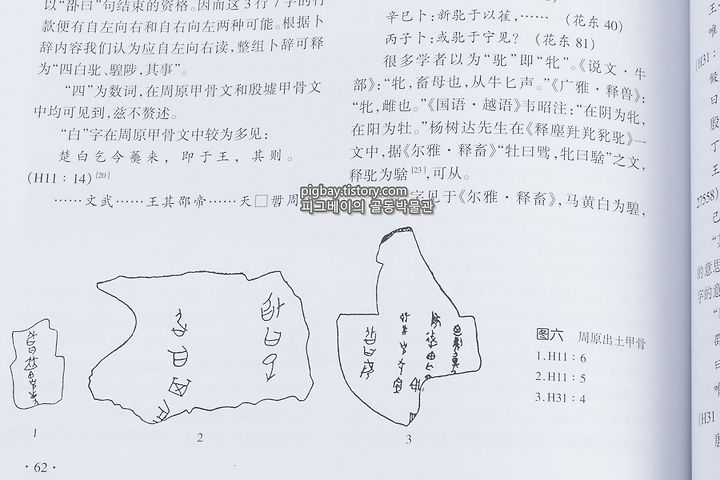 以“邵曰”句结束的资格。因而这3行7字的行
款便有自左向右和自右向左两种可能。根据卜
辞内容我们认为应自左向右读,整组卜辞可释
为“四白驰、騜陟,其事”。
“四”为数词,在周原甲骨文和殷墟甲骨文
中均可见到,兹不赘述。
“白”字在周原甲骨文中较为多见:
楚白乞今 来,即于王,其则。
(H11:14)[20]
……文武……王其邵帝……天□晢周
辛巳卜:新驰于以萑,…… (花东40)
丙子卜:或驰于宁见? (花东81)
很多学者以为“驰”即“牝”。《说文·牛
部》:“牝,畜母也,从牛匕声。”《广雅·释兽》:
“牝,雌也。”《国语·越语》韦昭注:“在阴为牝,
在阳为牡。”杨树达先生在《释
文中,据《尔雅·释畜》“牡曰骘,牝曰騇”之文,
释驰为騇[23],可从。
字见于《尔雅·释畜》,马黄白为騜,
pigbay.tistory.com
피그베이의 골동박물관
图六 周原出土甲骨
1.H11:6
2.H11:5
3.H31:4
1
2
3
·62·
(H31:
27558)
的意思
字的意
(H31: